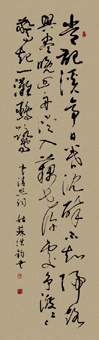 常記溪亭日暮沈醉不知歸路
興盡晚回舟誤入藕花深處爭渡々
驚起一灘鷗鷺 李清照詞 姑蘇